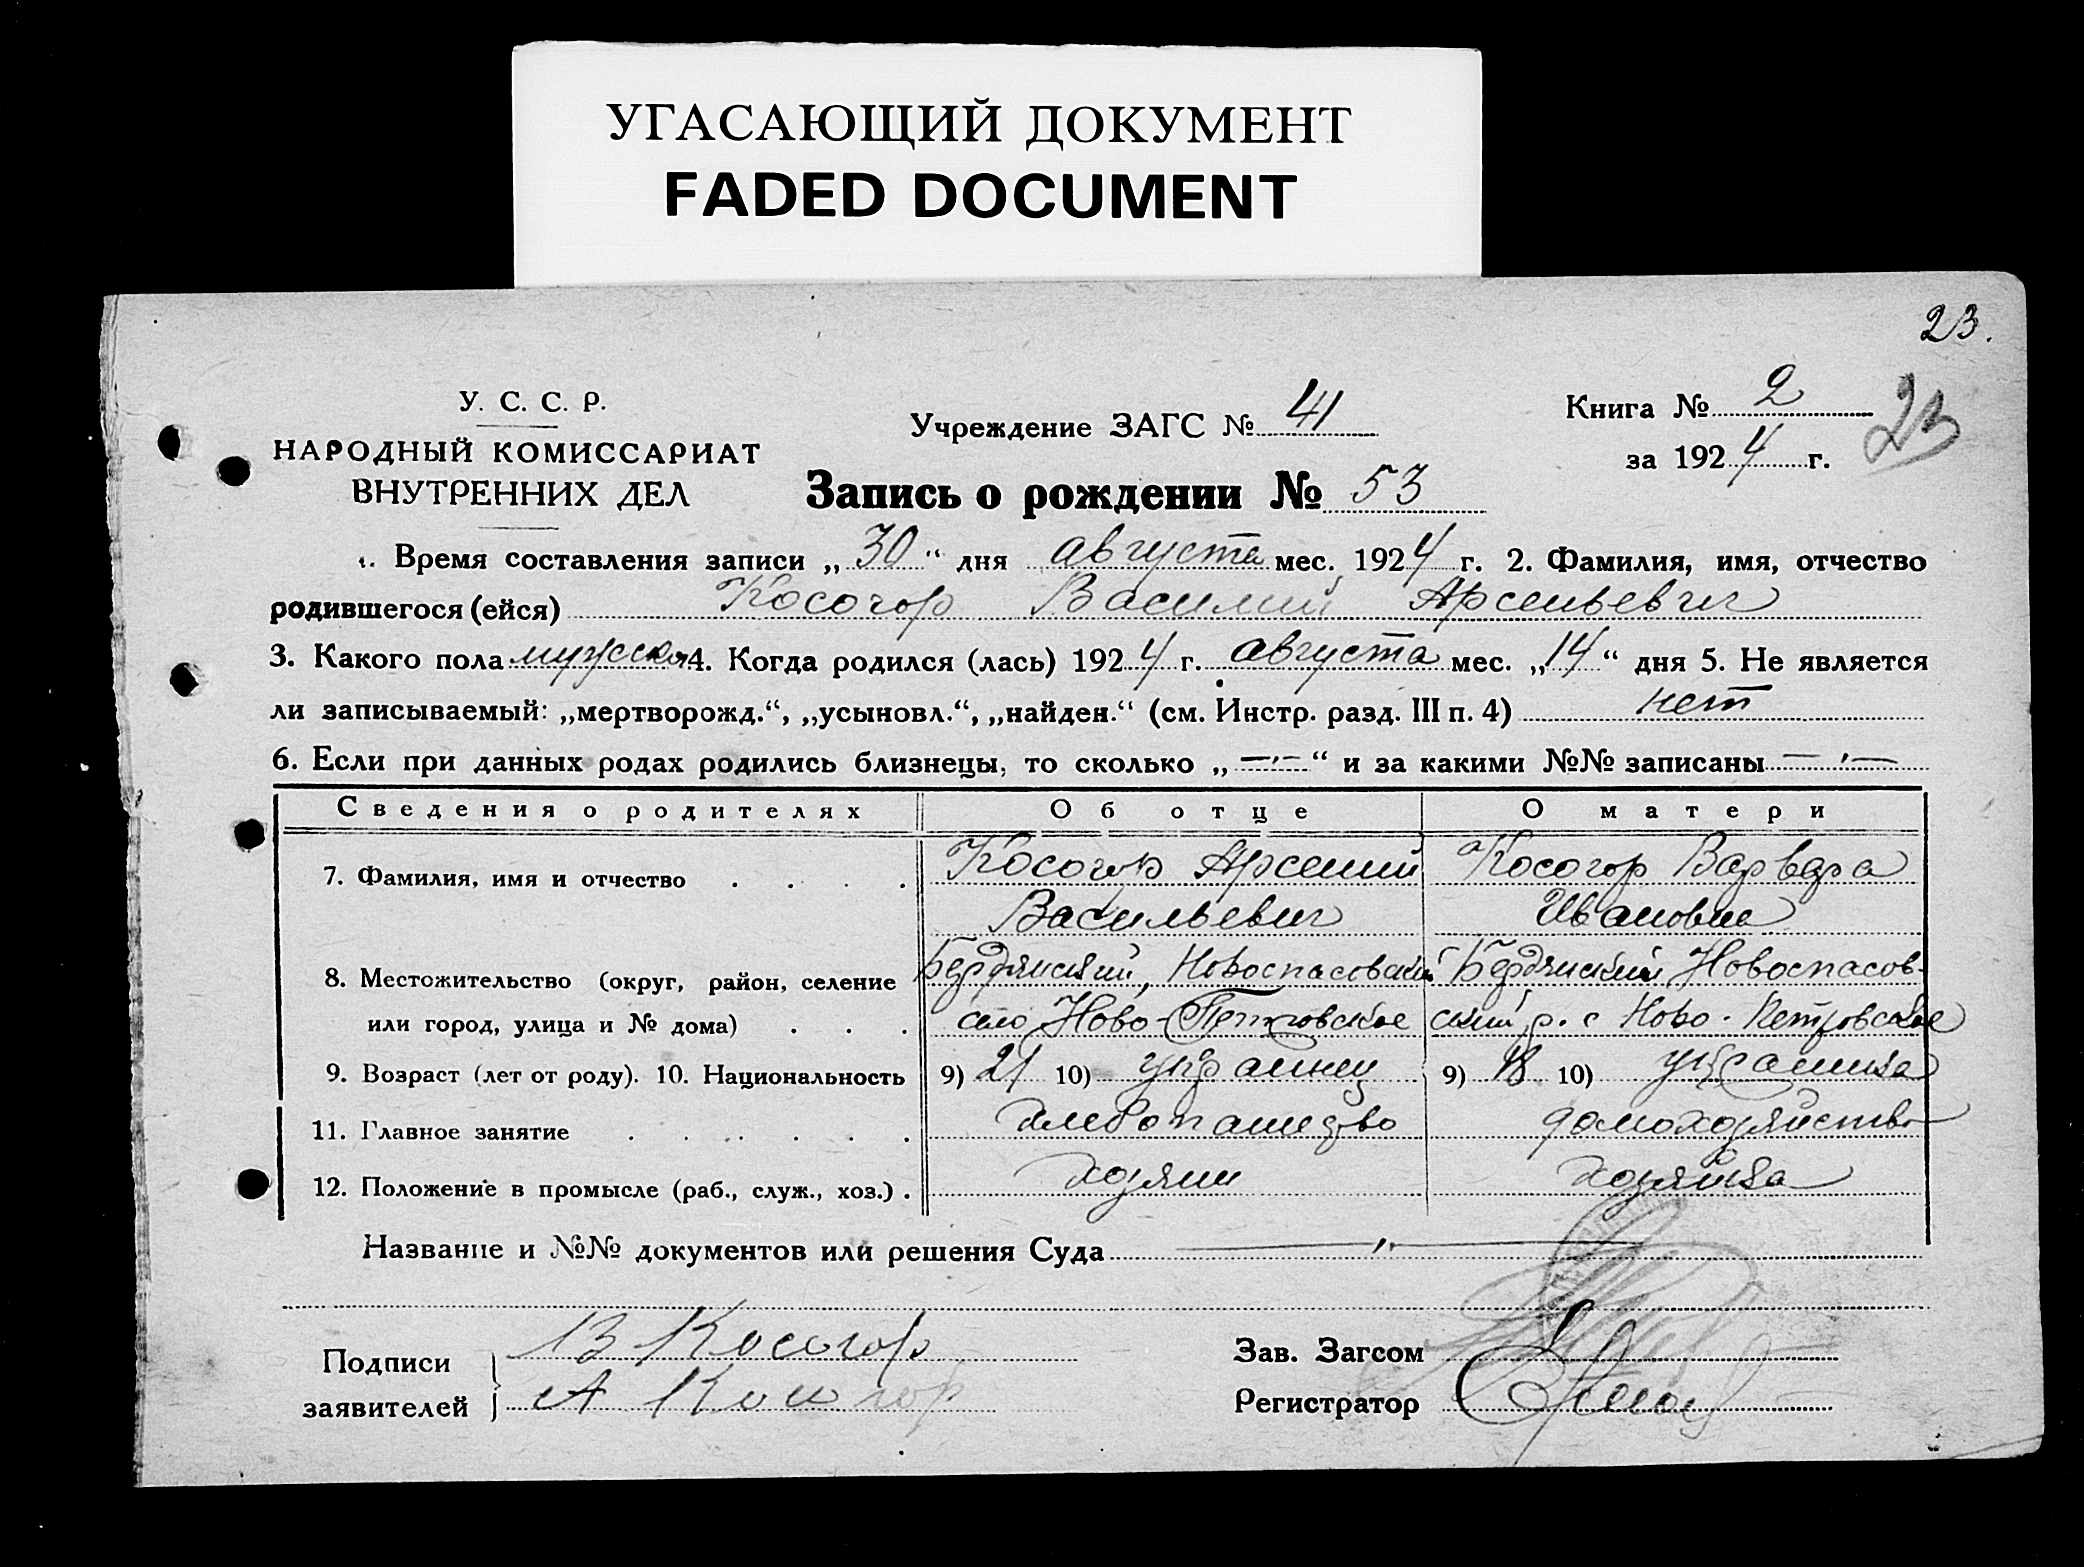 УГАСАЮЩИЙ ДОКУМЕНТ
FADED DOCUMENT
23.
У. С. С. Р.
НАРОДНЫЙ КОМИССАРИАТ
ВНУТРЕННИХ ДЕЛ
Учреждение ЗАГС № 41
Книга № 2
23
за 1924 г.
Запись о рождении № 53
1. Время составления записи „30“ дня августа мес. 1924 г. 2. Фамилия, имя, отчество
родившегося (ейся) Косогор Василий Арсеньевич
3. Какого пола мужское 4. Когда родился (лась) 1924 г. августа мес. „14“ дня 5. Не является
ли записываемый: „мертворожд.“, „усыновл.“, „найден.“ (см. Инстр. разд. III п. 4) нет
6. Если при данных родах родились близнецы, то сколько „—“ и за какими №№ записаны —
Сведения о родителях Об отце О матери
7. Фамилия, имя и отчество Косогор Арсений Косогор Варвара
Васильевич Ивановна
8. Местожительство (округ, район, селение Бердянский, Новоспасовский Бердянский Новоспасов-
или город, улица и № дома) село Ново-Петровское ский р. с Ново-Петровское
9. Возраст (лет от роду). 10. Национальность 9) 21 10) украинец 9) 18 10) украинка
11. Главное занятие хлебопашество домохозяйство
12. Положение в промысле (раб., служ., хоз.) хозяин хозяйка
Название и №№ документов или решения Суда —
Подписи В Косогор
заявителей А Косогор
Зав. Загсом
Регистратор